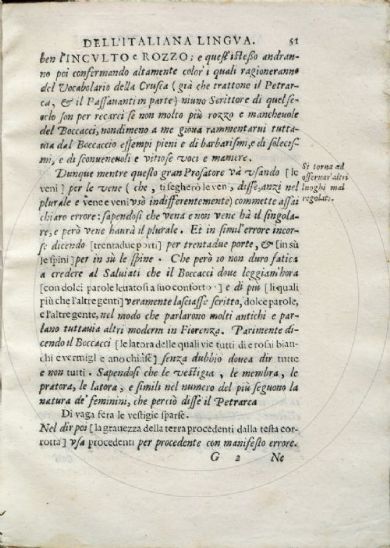 DELL'ITALIANA LINGVA. 51
ben l'INCVLTO e ROZZO; e quest'istesso andran-
no poi confermando altamente color'i quali ragioneranno
del Vocabolario della Crusca (già che trattone il Petrar-
ca, & il Passauanti in parte) niuno Scrittore di quel se-
colo son per recarci se non molto più rozzo e mancheuole
del Boccacci, nondimeno a me gioua rammentarui tutta-
uia dal Boccaccio essempi pieni e di barbarismi, e di solecis-
mi, e di sconueneuoli e vitiose voci e maniere.
Dunque mentre questo gran Prosatore và vsando [le
veni] per le vene (che, ti segherò le ven', disse, anzi nel
plurale e vene e veni vsò indifferentemente) commette assai
chiaro errore: sapendosi che vena e non vene hà il singola-
re, e però vene haurà il plurale. Et in simil'errore incor-
se dicendo [trentadue porti] per trentadue porte, & [in sù
le spini] per in sù le spine. Che però io non duro fatica
a credere al Saluiati che il Boccacci doue leggiam'hora
[con dolci parole leuatosi a suo conforto] e di più [li quali
più che l'altre genti] veramente lasciasse scritto, dolce parole,
e l'altre gente, nel modo che parlarono molti antichi e par-
lano tuttauia altri moderni in Fiorenza. Parimente di-
cendo il Boccacci [le latora delle quali vie tutti di rosai bian-
chi e vermigli e chiuse] senza dubbio douea dir tutte
e non tutti. Sapendosi che le vestigia, le membra, le
pratora, le latora, e simili nel numero del più seguono la
natura de' feminini, che perciò disse il Petrarca
Di vaga fera le vestigie sparse.
Nel dir poi [la grauezza della terra procedenti dalla testa cor-
rotta] vsa procedenti per procedente con manifesto errore.
G 2 Ne
Si torna ad
osseruar'altri
luoghi mal
regolati.